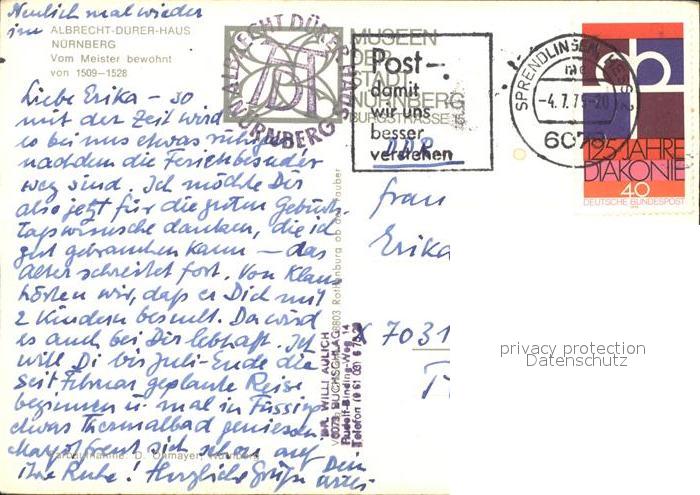 Neulich mal wieder
im ALBRECHT-DÜRER-HAUS
NÜRNBERG
Vom Meister bewohnt
von 1509–1528
Liebe Erika – so
mit der Zeit wird
es bei uns etwas ruhiger
nachdem die Ferienkinder
weg sind. Ich möchte Dir
also jetzt für die guten Geburts-
tagswünsche danken, die ich
gut gebrauchen kann – das
Alter schreitet fort. Von Klaus
hörten wir, daß er Dich mit
2 Kindern besucht. Da wird
es auch bei Dir lebhaft. Ich
will Di bis Juli-Ende die
seit Februar geplante Reise
beginnen u. mal in Füssing
etwas Thermalbad geniessen
Margot freut sich schon auf
ihre Ruhe! Herzliche Grüße Dein
ALBRECHT DÜRER HAUS
NÜRNBERG
MUSEEN
DER
STADT
NÜRNBERG
BURGSTRASSE 15
Post –
damit
wir uns
besser
verstehen
SPRENDLINGEN, HESS 2
mc
-4.7.75-20
6079
125 JAHRE
DIAKONIE
40
DEUTSCHE BUNDESPOST
DDR
Frau
Erika
X 7031
8803 Rothenburg ob der Tauber
DR. WILLI AULICH
6073 BUCHSCHLAG
Rudolf-Binding-Weg 14
Farbaufnahme: D. Ohmayer, Nürnberg
privacy protection
Datenschutz